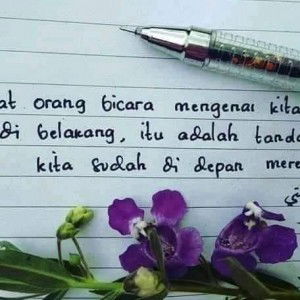 at orang bicara mengenai kita
di belakang, itu adalah tanda
kita sudah di depan mere